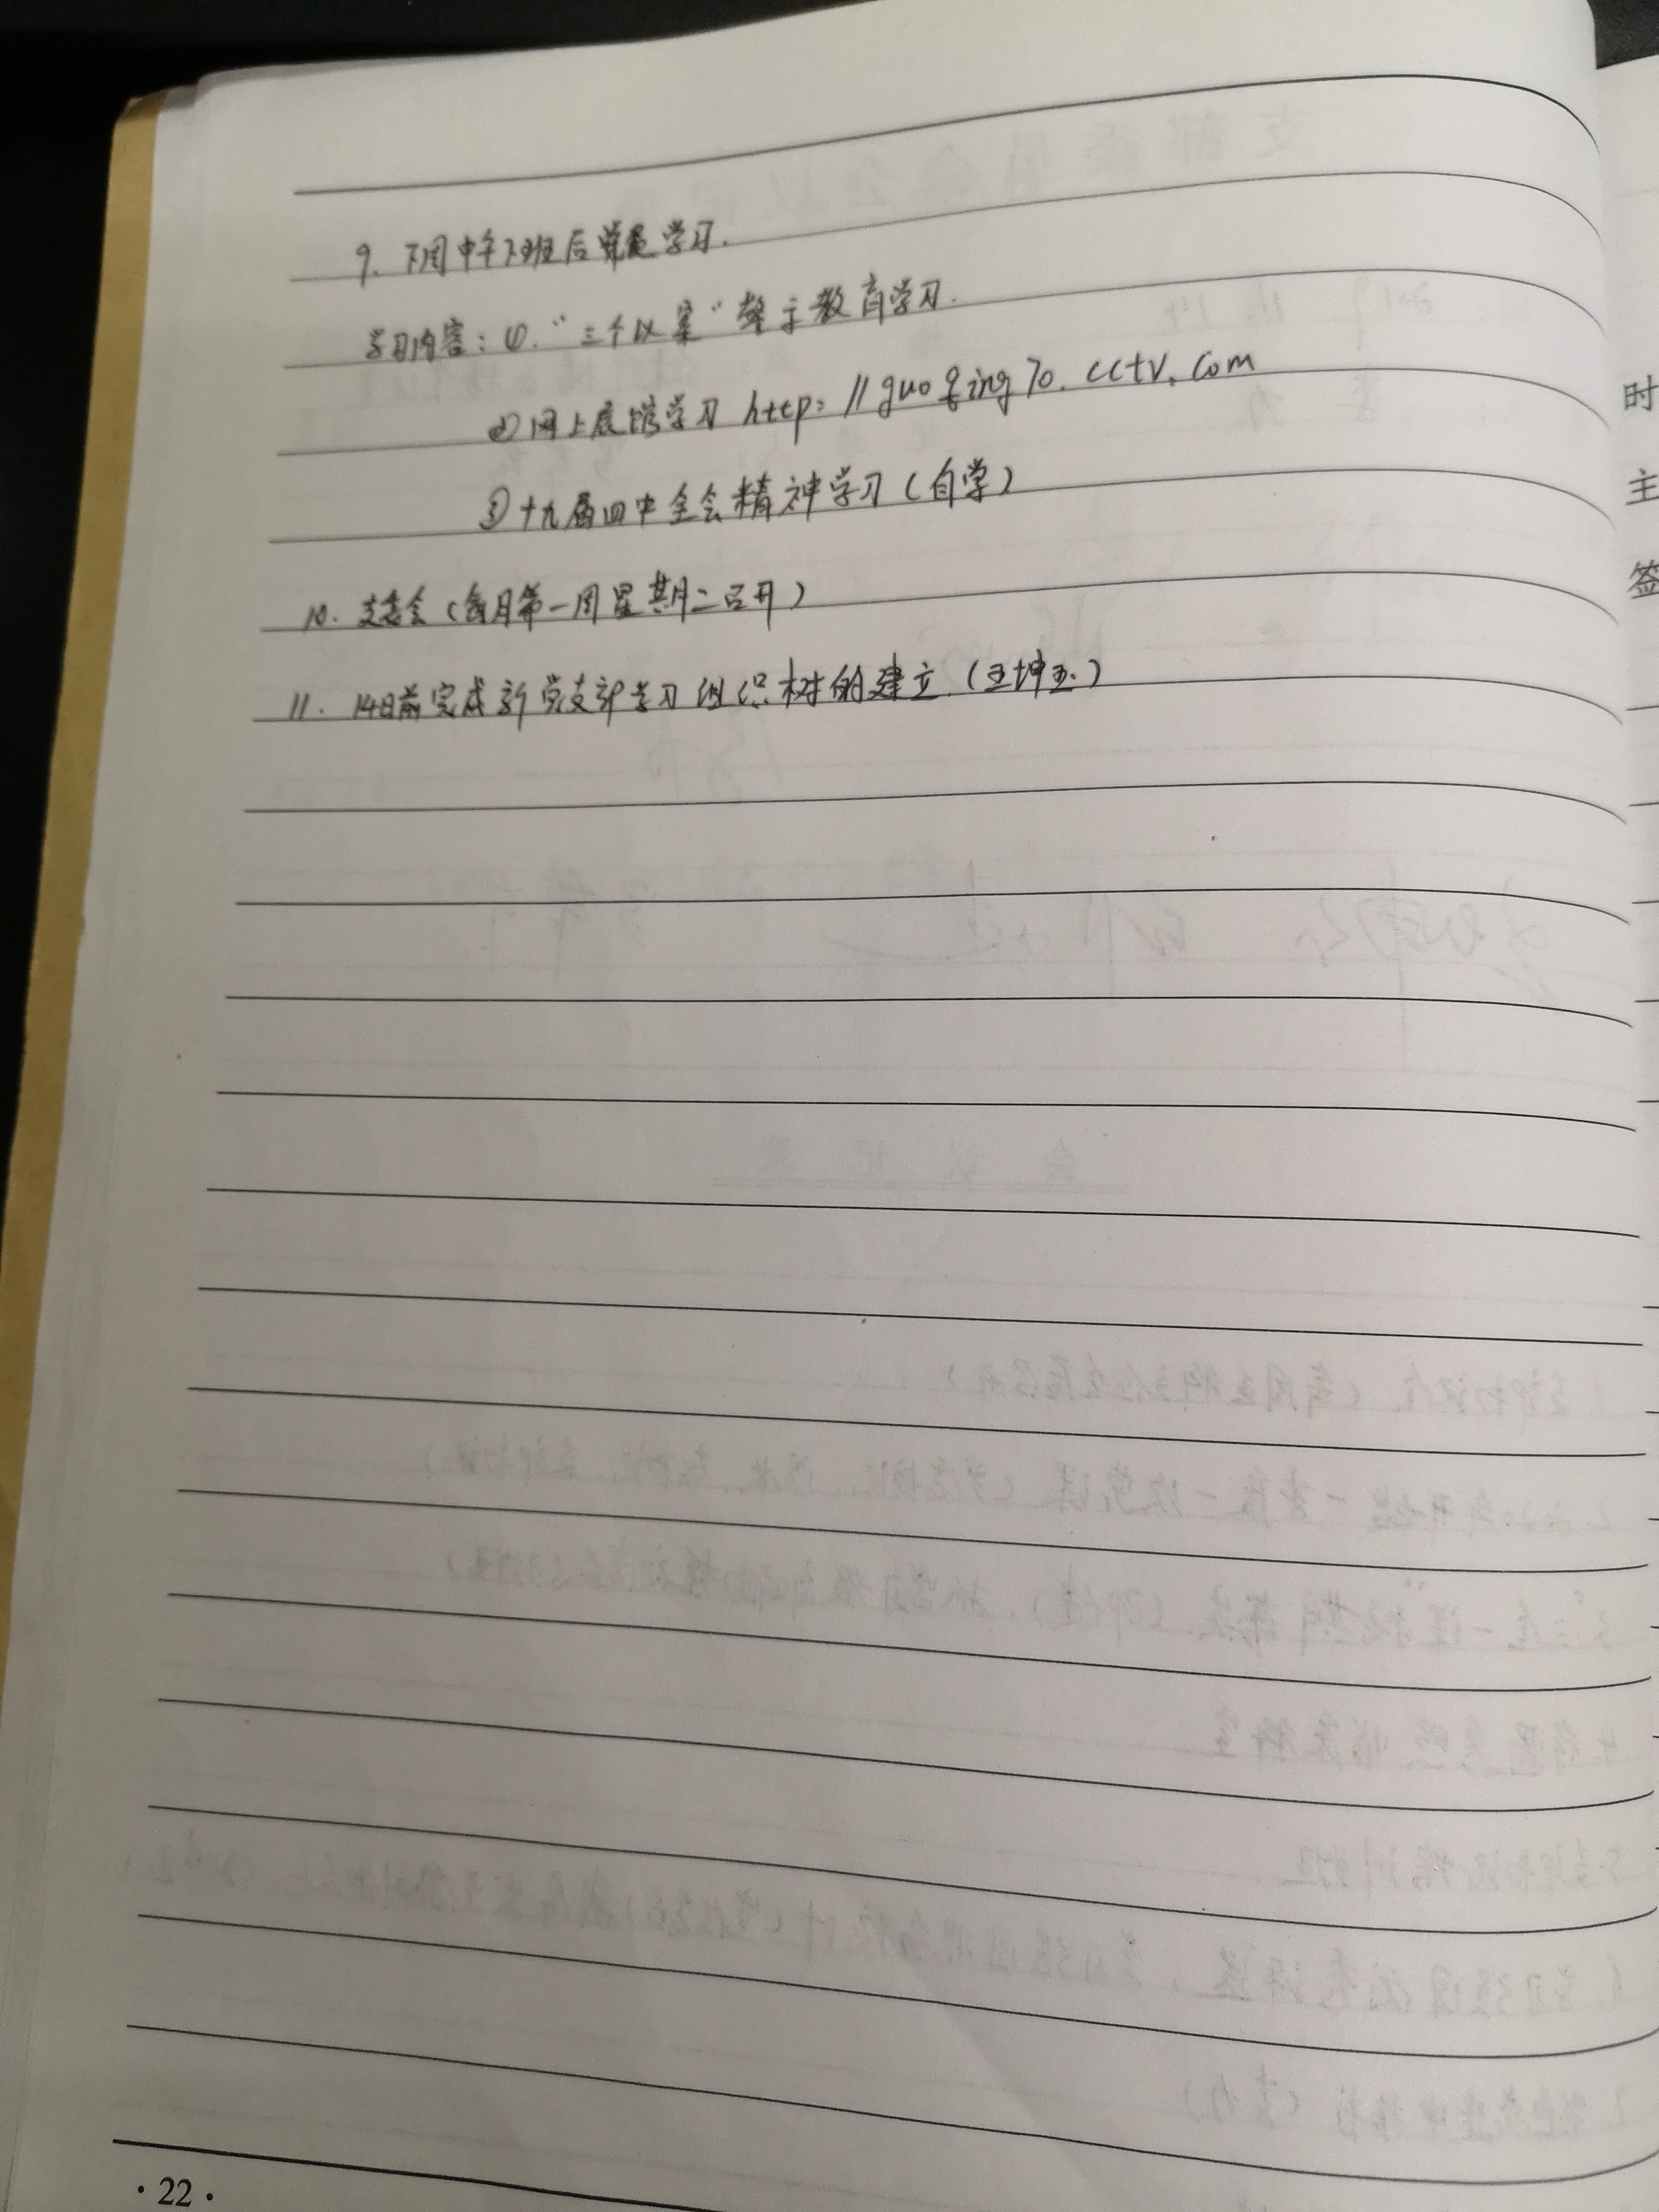 9. 下周中午下班后党员学习.
学习内容：①.“三个以案”警示教育学习.
②网上展馆学习 http://guoqing70.cctv.com
③十九届四中全会精神学习(自学)
10. 支委会(每月第一周星期二召开)
11. 14日前完成新党支部学习组织树的建立.(王坤玉.)
·22·
时
主
签